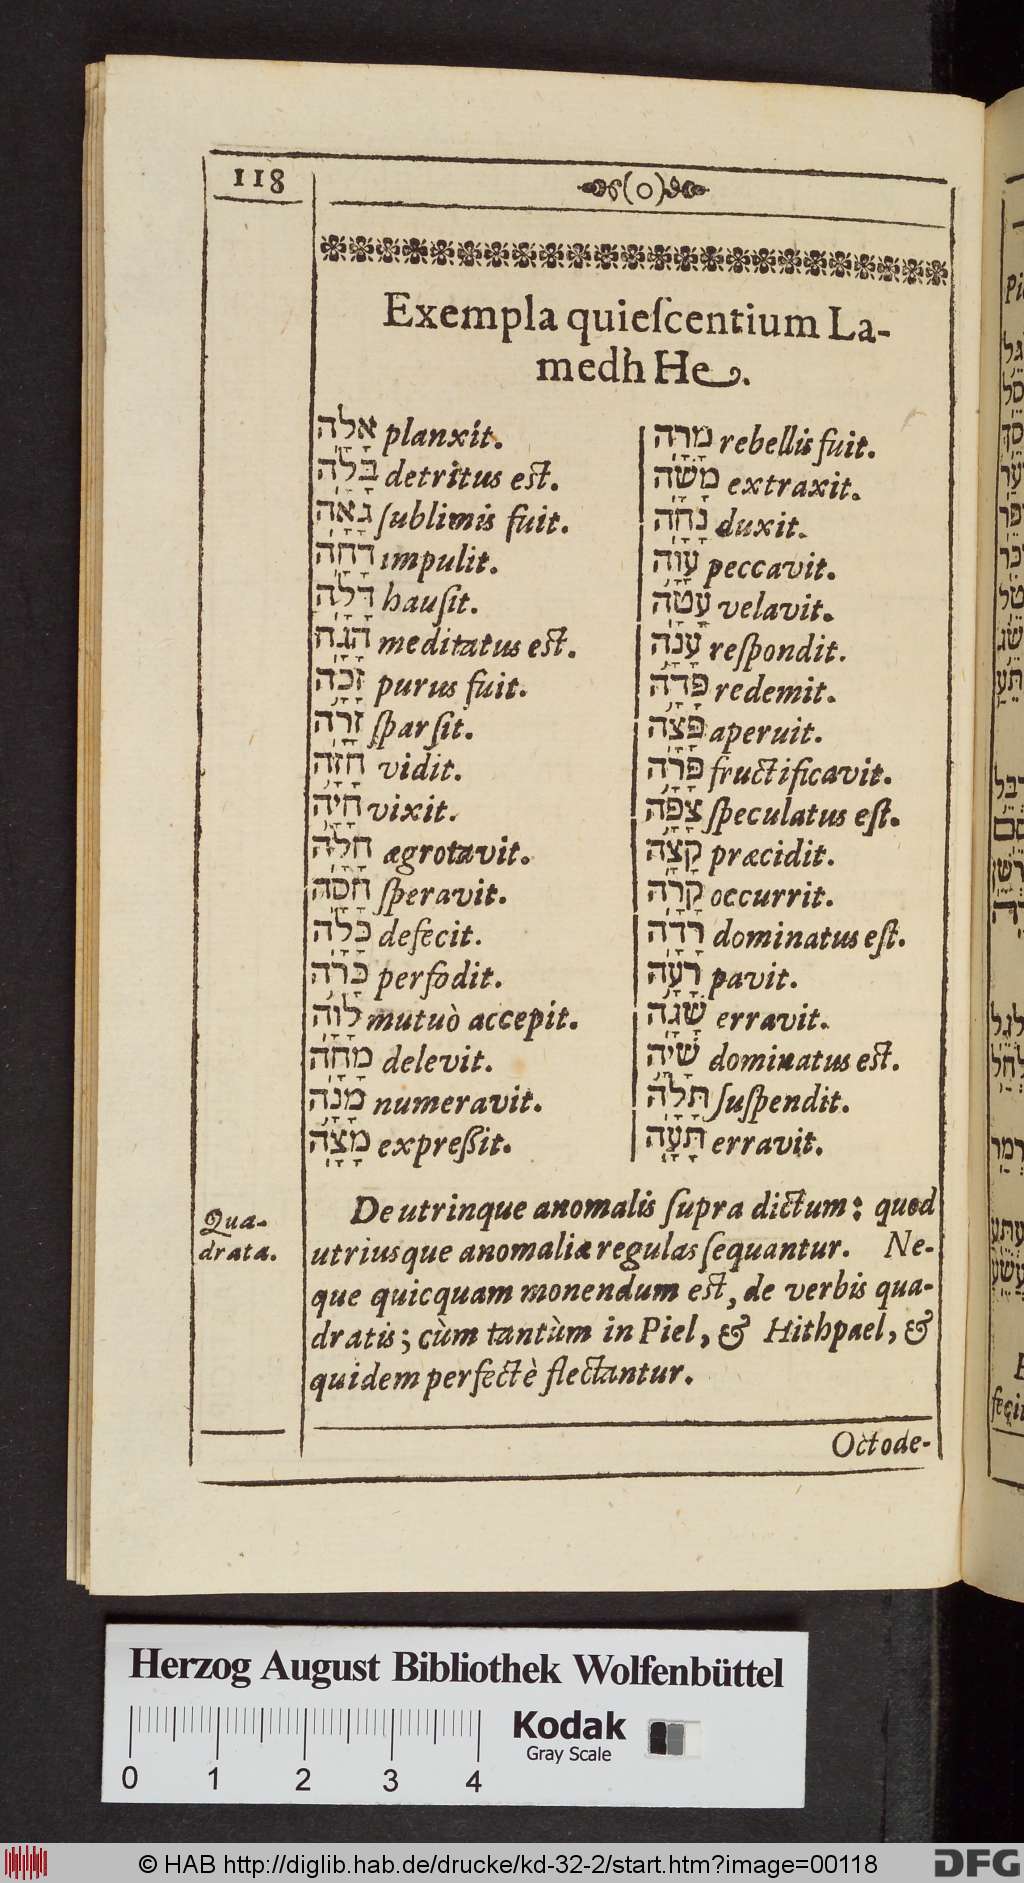 118
(o)
Exempla quieſcentium La-
medh He.
אָלָה planxit.
בָּלָה detritus est.
גָּאָה ſublimis fuit.
דָּחָה impulit.
דָּלָה hauſit.
הָגָה meditatus est.
זָכָה purus fuit.
זָרָה ſparſit.
חָזָה vidit.
חָיָה vixit.
חָלָה ægrotavit.
חָסָה ſperavit.
כָּלָה defecit.
כָּרָה perfodit.
לָוָה mutuò accepit.
מָחָה delevit.
מָנָה numeravit.
מָצָה expreſſit.
מָרָה rebellis fuit.
מָשָׁה extraxit.
נָחָה duxit.
עָוָה peccavit.
עָטָה velavit.
עָנָה reſpondit.
פָּדָה redemit.
פָּצָה aperuit.
פָּרָה fructificavit.
צָפָה ſpeculatus eſt.
קָצָה præcidit.
קָרָה occurrit.
רָדָה dominatus eſt.
רָעָה pavit.
שָׁגָה erravit.
שָׁיָה dominatus est.
תָּלָה ſuſpendit.
תָּעָה erravit.
Qua-
drata.
De utrinque anomalis ſupra dictum: quod
utriusque anomaliæ regulas ſequantur. Ne-
que quicquam monendum est, de verbis qua-
dratis; cùm tantùm in Piel, & Hithpael, &
quidem perfectè flectantur.
Octode-
Herzog August Bibliothek Wolfenbüttel
0 1 2 3 4
Kodak
Gray Scale
© HAB http://diglib.hab.de/drucke/kd-32-2/start.htm?image=00118
DFG